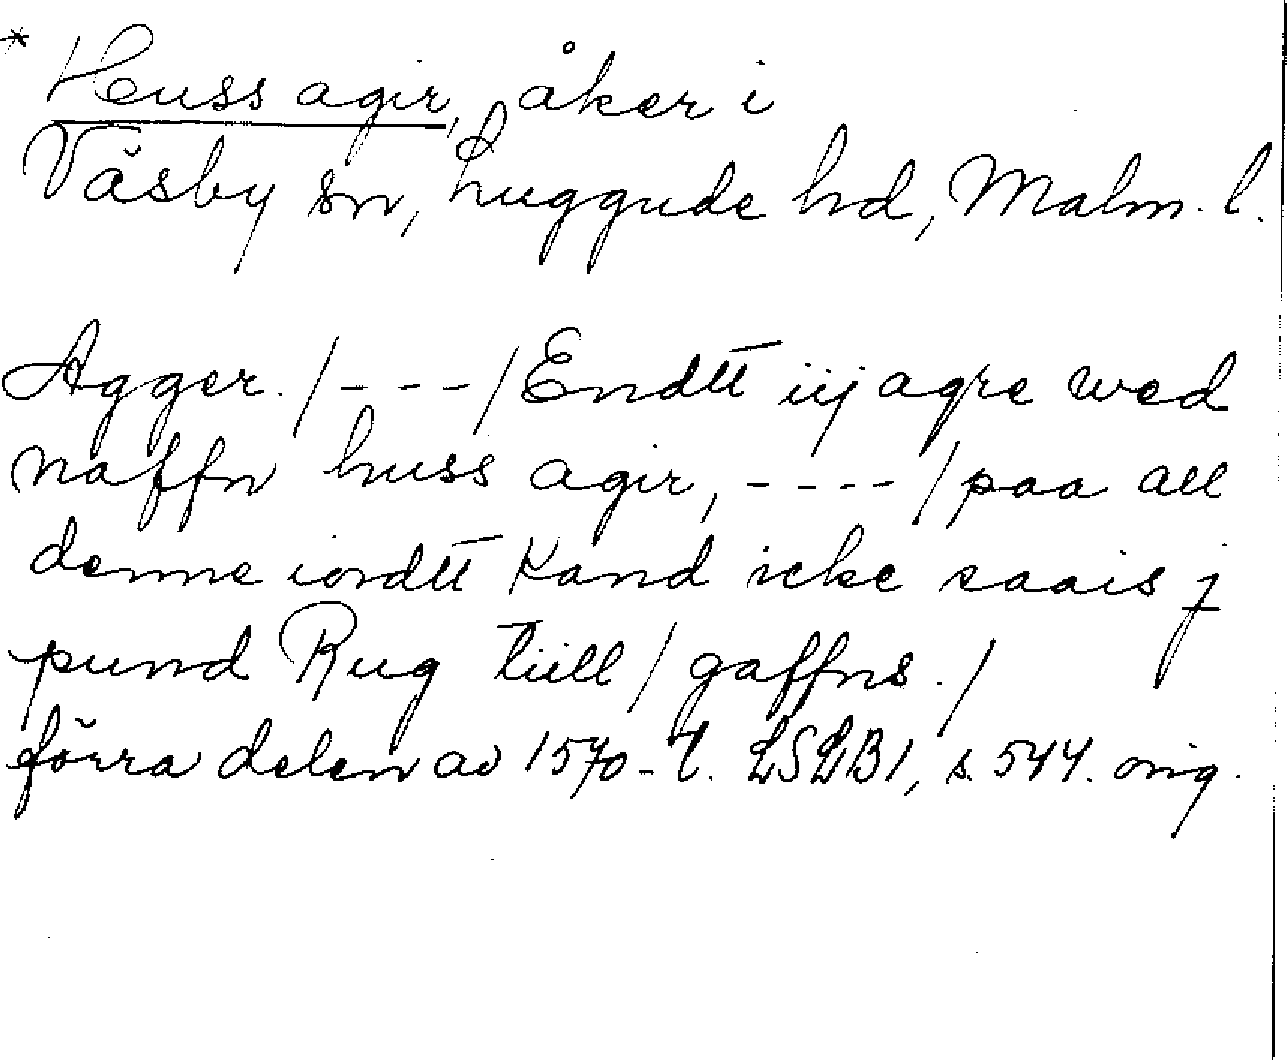 * Huss agir, åker i
Väsby sn, Luggude hd, Malm. l.
Agger. /- - - -/ Endtt iij agre wed
naffn huss agir, - - - - / paa all
denne iordtt Kand icke saais j
pund Rug tiill / gaffns. /
förra delen av 1570-t. LSLB1, s. 544. orig.